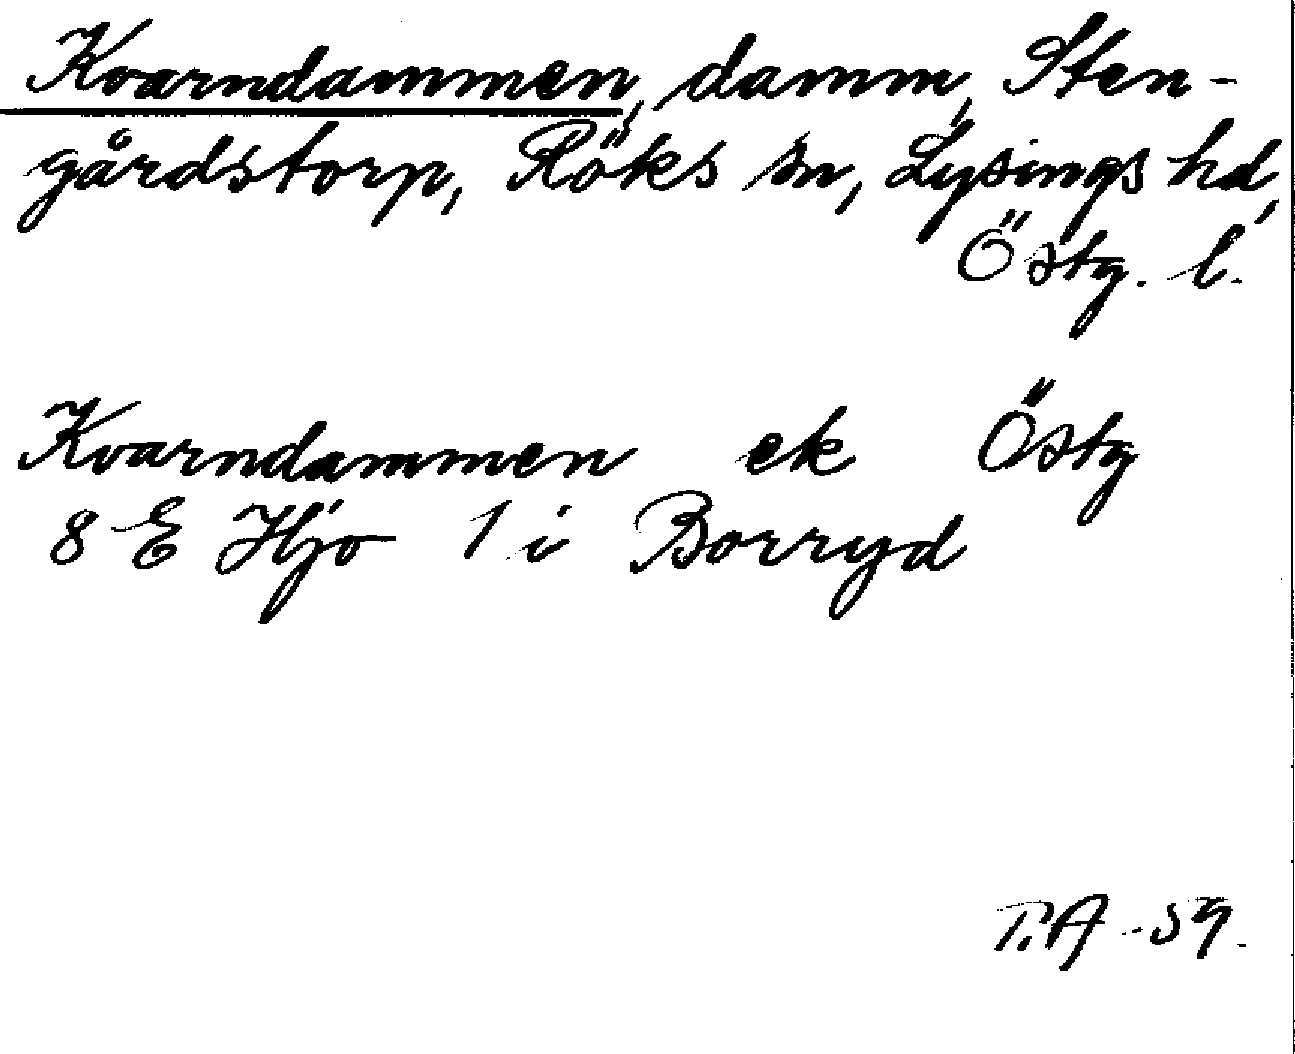 Kvarndammen, damm, Sten-
gårdstorp, Röks sn, Lysings hd,
Östg. l.
Kvarndammen ek Östg
8 E Hjo 1 i Borryd
T.A -59.